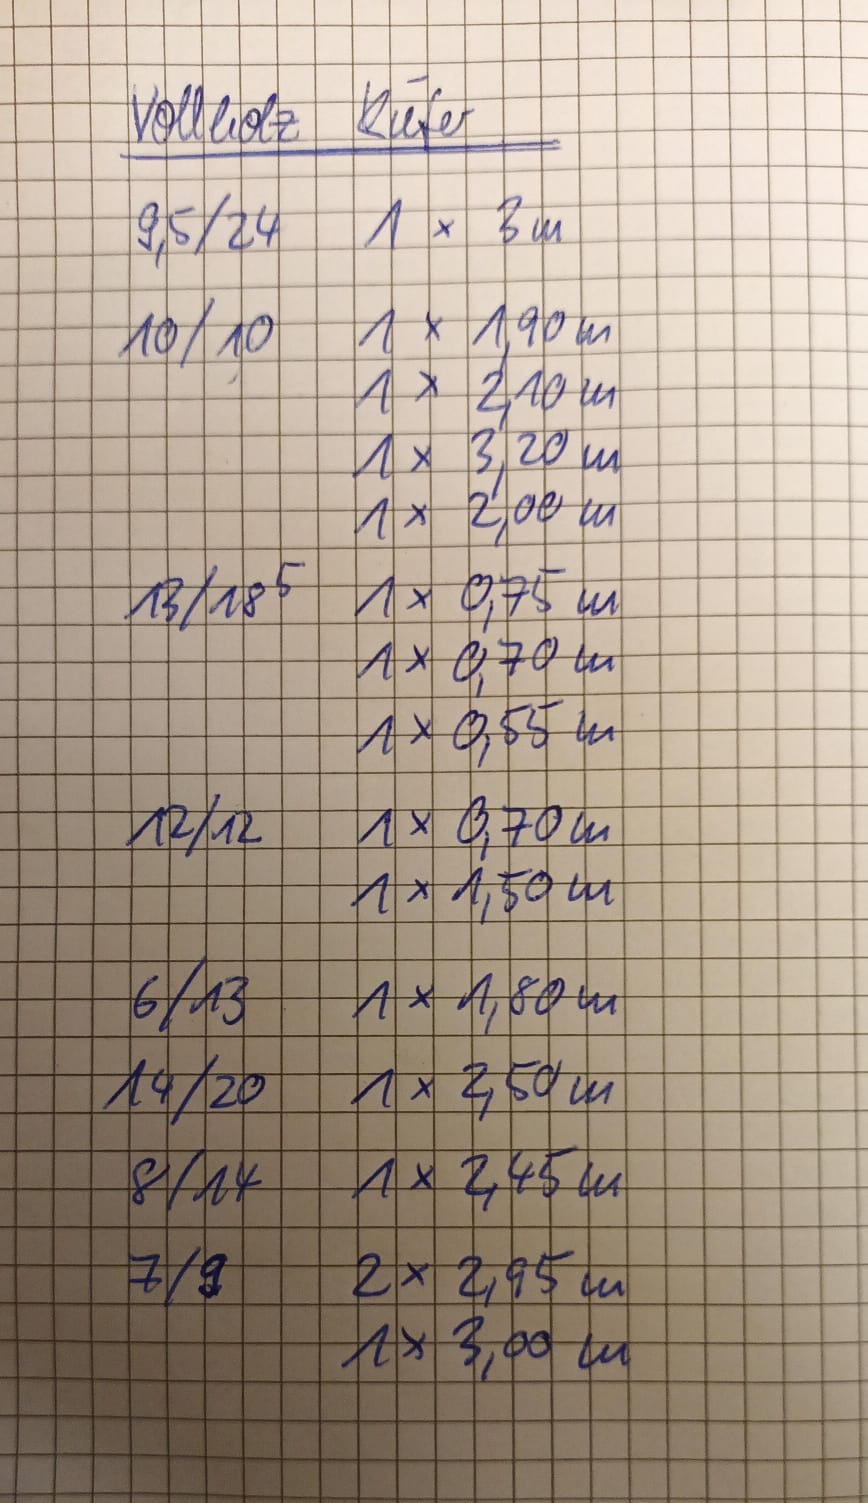 Vollholz Kiefer
9,5/24 1 x 3 m
10/10 1 x 1,90 m
1 x 2,10 m
1 x 3,20 m
1 x 2,00 m
13/18⁵ 1 x 0,75 m
1 x 0,70 m
1 x 0,55 m
12/12 1 x 0,70 m
1 x 1,50 m
6/13 1 x 1,80 m
14/20 1 x 2,50 m
8/14 1 x 2,45 m
7/9 2 x 2,95 m
1 x 3,00 m